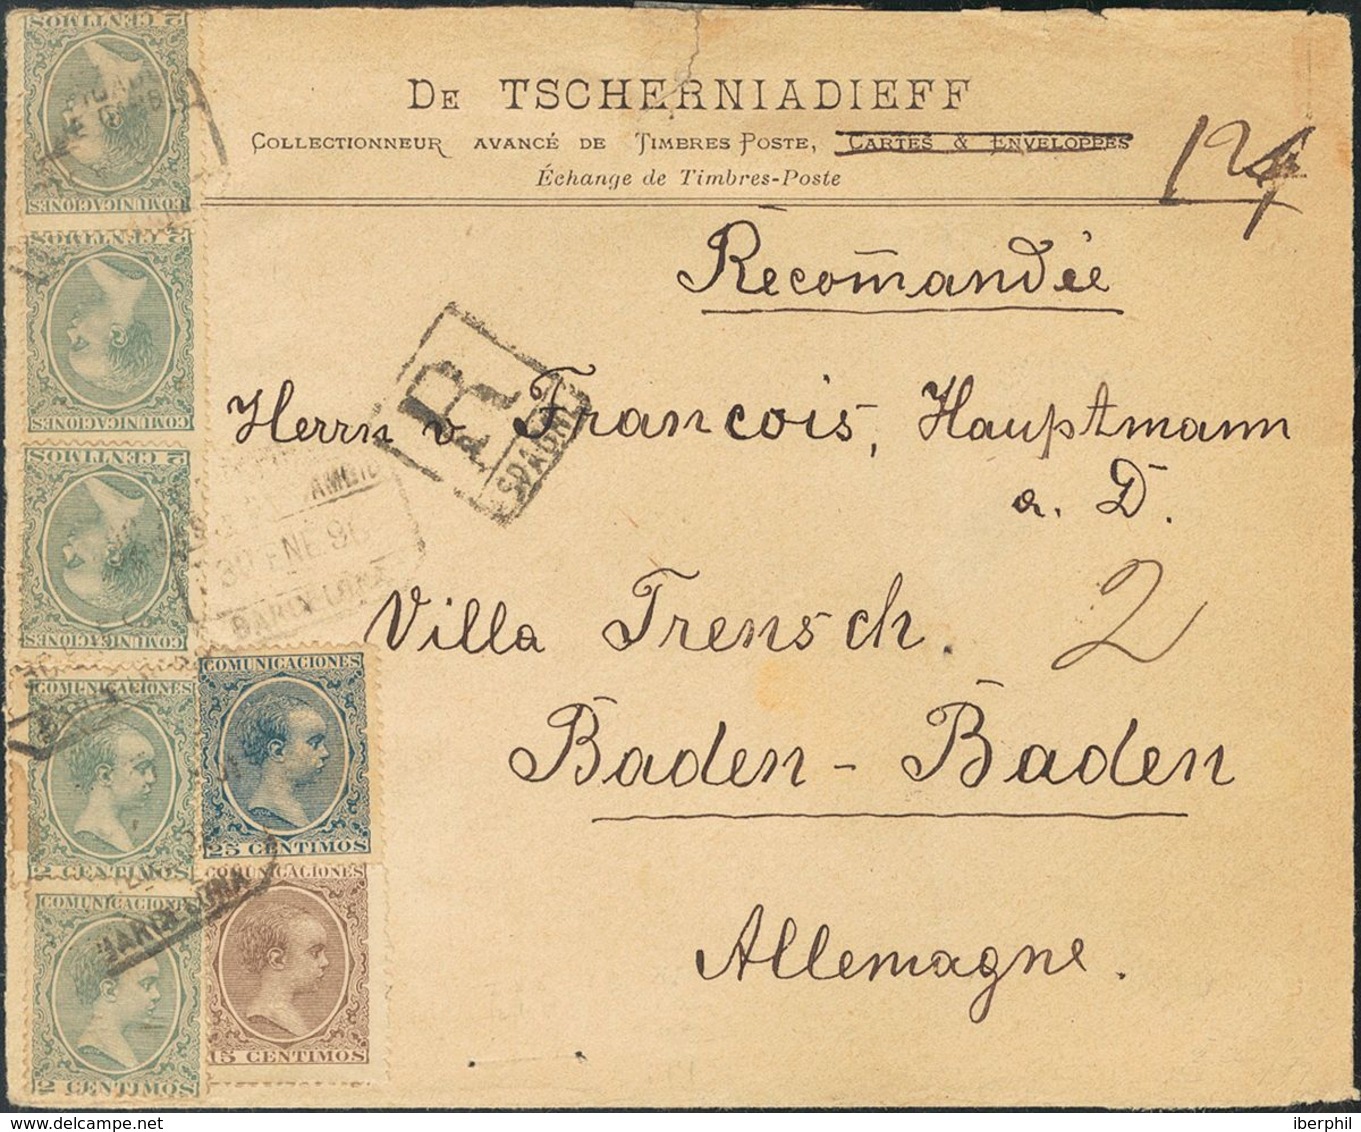 DE TSCHERNIADIEFF
COLLECTIONNEUR AVANCÉ DE TIMBRES POSTE, CARTES & ENVELOPPES
Échange de Timbres-Poste
Recom̄andée
R
Herrn v. Francois, Hauptmann
a. D.
AMBIO
30 ENE. 96
BARCELONA
Villa Trensch.
2
Baden - Baden
Allemagne.
2 CENTIMOS
COMUNICACIONES
2 CENTIMOS
COMUNICACIONES
2 CENTIMOS
COMUNICACIONES
COMUNICACIONES
2 CENTIMOS
COMUNICACIONES
2 CENTIMOS
COMUNICACIONES
25 CENTIMOS
COMUNICACIONES
15 CENTIMOS
BARCELONA
iberphil